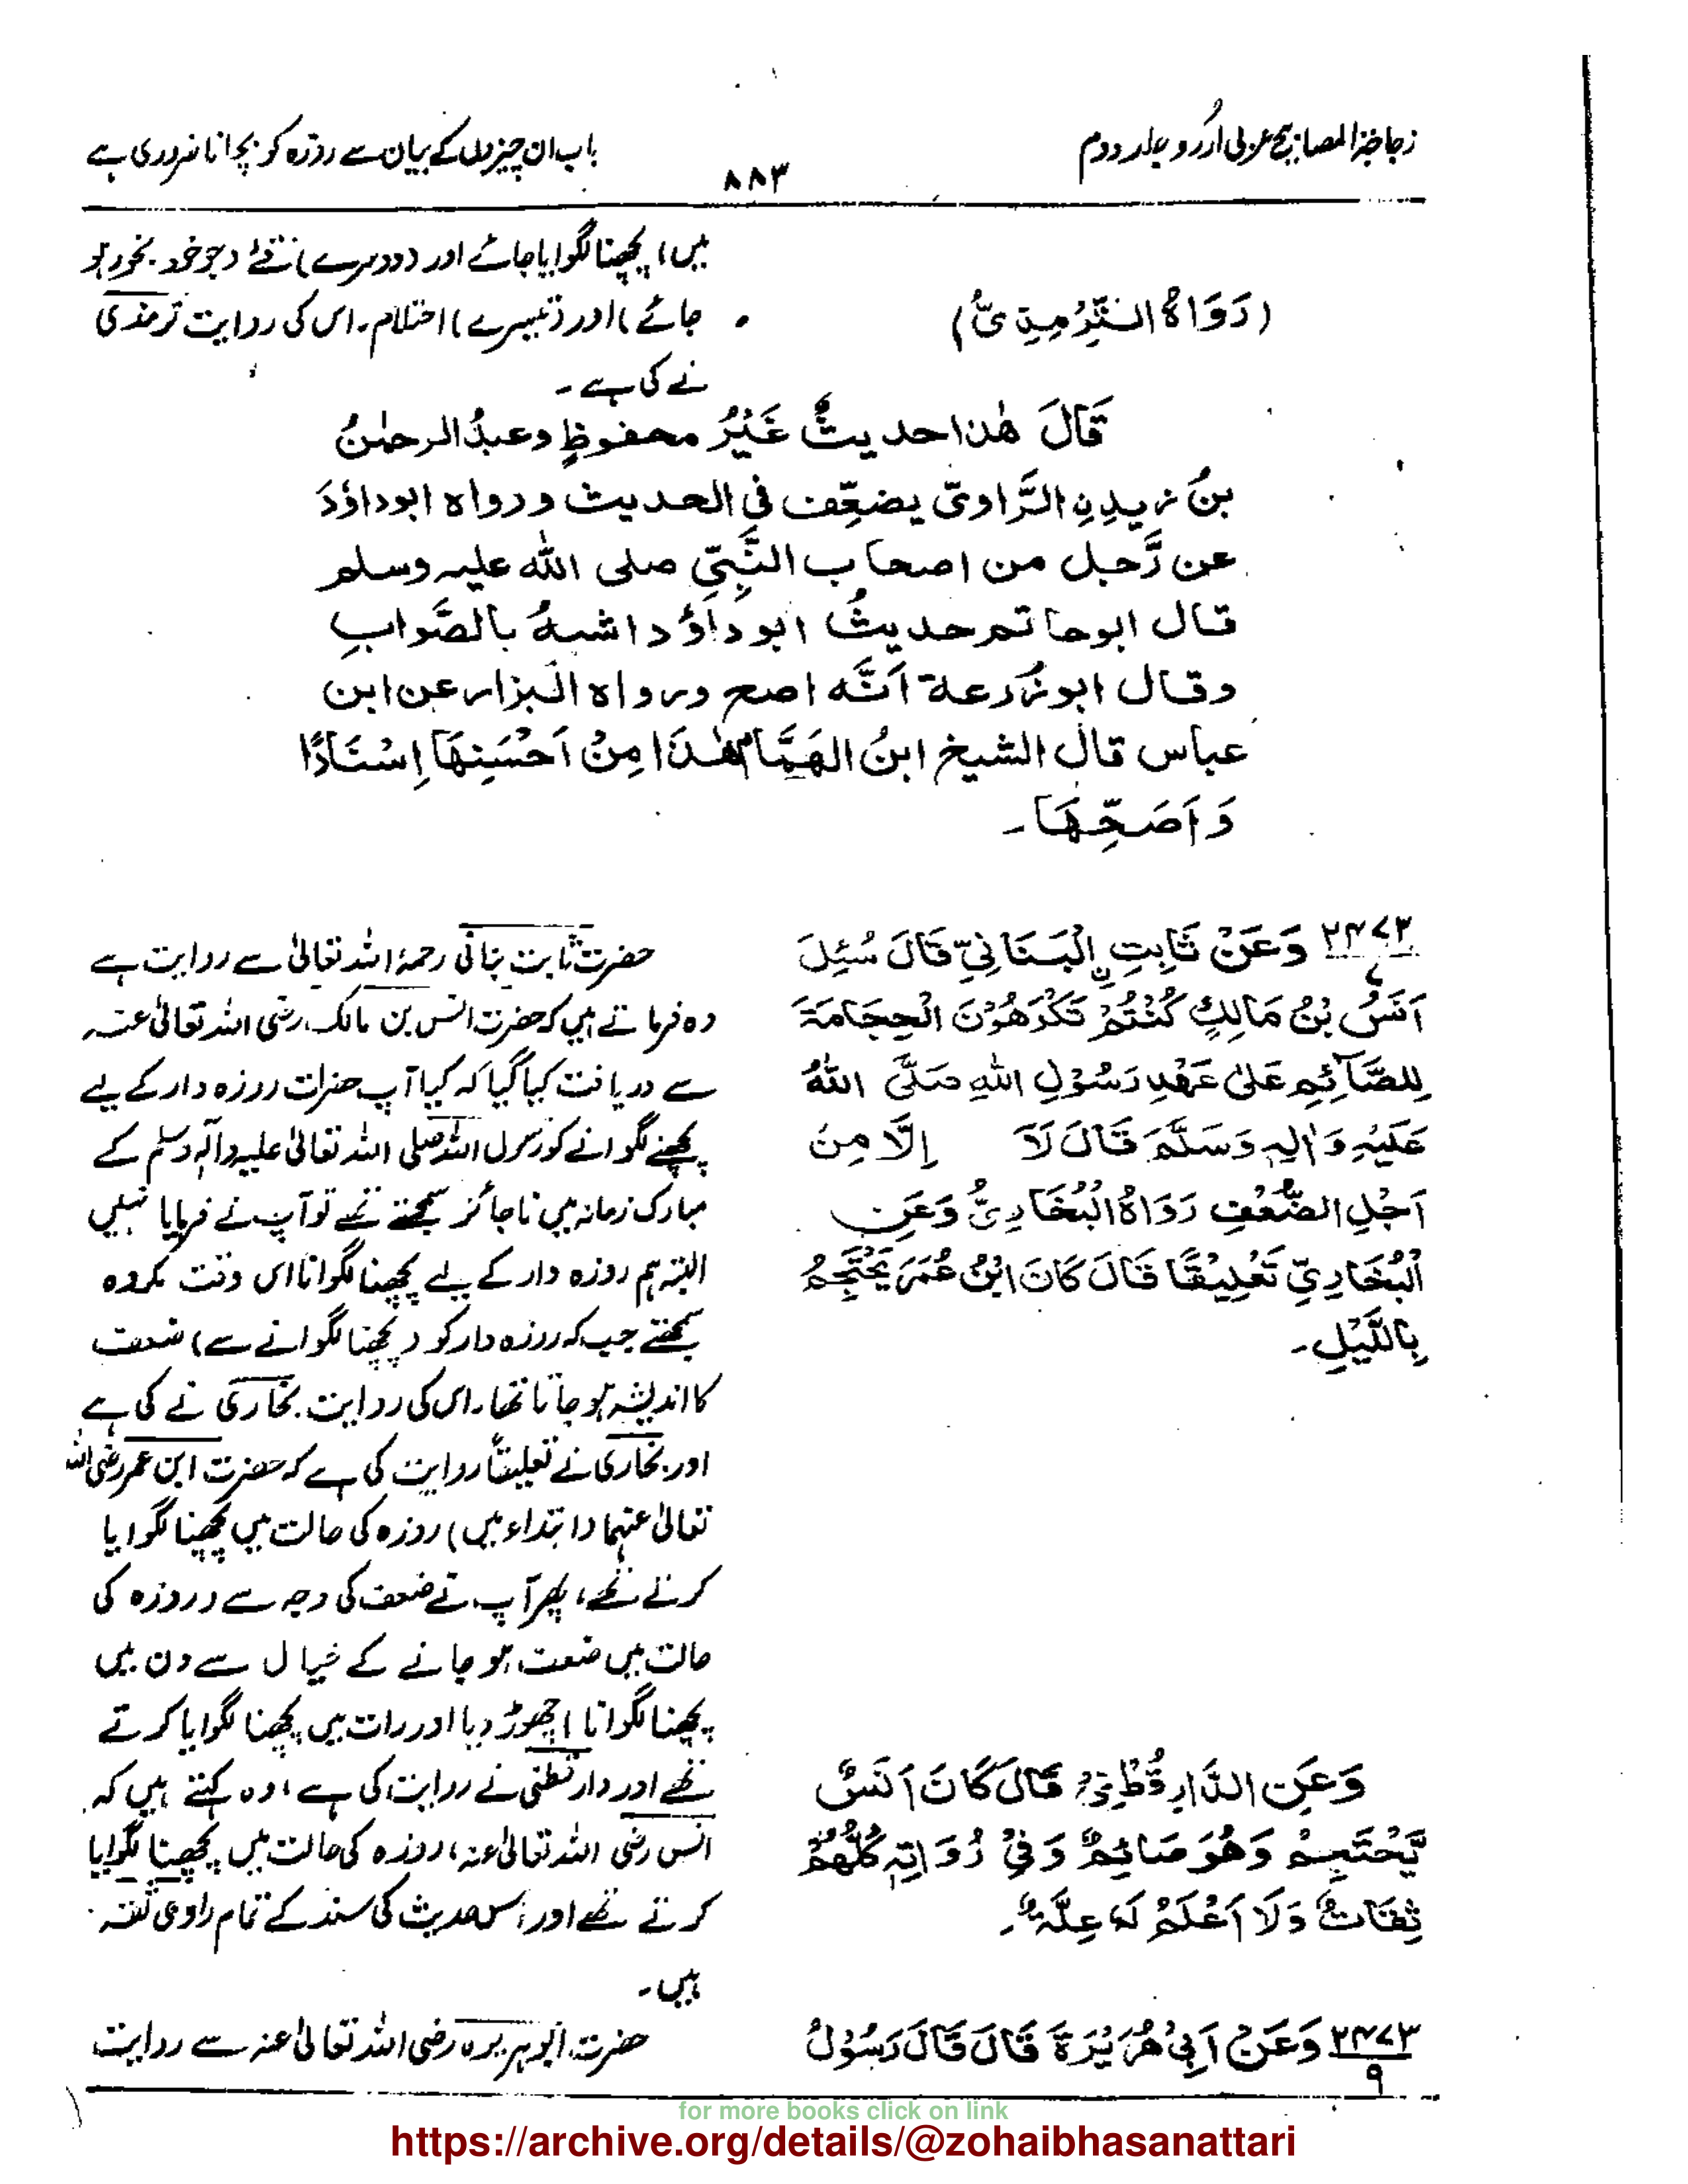 زجاجۃ المصابیح عربی اُردو جلد دوم
۸۸۳
باب ان چیزوں کے بیان سے روزہ کو بچانا ضروری ہے
(رَوَاهُ التِّرْمِذِىُّ)
ہیں) پچھنا لگوایا جائے اور (دوسرے) قئے (جو خود بخود ہو
جائے) اور (تیسرے) احتلام۔ اس کی روایت ترمذی
نے کی ہے۔
قَالَ هٰذا حديثٌ غَيْرُ محفوظٍ وعبدُ الرحمٰنُ
بنُ زيدِنِ الرَّاوىّ يضعّف فى الحديث ورواه ابوداؤدَ
عن رَّجل من اصحاب النَّبِىِّ صلى الله عليه وسلم
قال ابوحاتم حديثُ ابوداؤد اشبهُ بالصَّوابِ
وقال ابوزُرعة اَنَّه اصح ورواه البزار عن ابن
عباس قال الشيخ ابنُ الهَمَّام هٰذَا مِنْ اَحْسَنِهَا اِسْنَادًا
وَاَصَحِّهَا۔
۲۴۷۲ وَعَنْ ثَابِتِ نِ الْبَنَانِىِّ قَالَ سُئِلَ
اَنَسُ بْنُ مَالِكٍ كُنْتُمْ تَكْرَهُوْنَ الْحِجَامَةَ
لِلصَّآئِمِ عَلىٰ عَهْدِ رَسُوْلِ اللهِ صَلَّى اللهُ
عَلَيْهِ وَاٰلِهٖ وَسَلَّمَ قَالَ لَا اِلَّا مِنْ
اَجْلِ الضُّعْفِ رَوَاهُ الْبُخَارِىُّ وَعَنِ
الْبُخَارِىِّ تَعْلِيْقًا قَالَ كَانَ ابْنُ عُمَرَ يَحْتَجِمُ
بِاللَّيْلِ۔
حضرت ثابت بنانی رحمۃ اللہ تعالیٰ سے روایت ہے
وہ فرماتے ہیں کہ حضرت انس بن مالک رضی اللہ تعالیٰ عنہ
سے دریافت کیا گیا کہ کیا آپ حضرات روزہ دار کے لیے
پچھنے لگوانے کو رسول اللہ صلی اللہ تعالیٰ علیہ وآلہ وسلم کے
مبارک زمانہ میں ناجائز سمجھتے تھے تو آپ نے فرمایا نہیں
البتہ ہم روزہ دار کے لیے پچھنا لگوانا اس وقت مکروہ
سمجھتے جب کہ روزہ دار کو (پچھنا لگوانے سے) ضعف
کا اندیشہ ہو جاتا تھا۔ اس کی روایت بخاری نے کی ہے
اور بخاری نے تعلیقاً روایت کی ہے کہ حضرت ابن عمر رضی اللہ
تعالیٰ عنہما (ابتداء میں) روزہ کی حالت میں پچھنا لگوایا
کرتے تھے، پھر آپ نے ضعف کی وجہ سے (روزہ کی
حالت میں ضعف ہو جانے کے خیال سے دن میں
پچھنا لگوانا) چھوڑ دیا اور رات میں پچھنا لگوایا کرتے
تھے اور دارقطنی نے روایت کی ہے، وہ کہتے ہیں کہ
انس رضی اللہ تعالیٰ عنہ، روزہ کی حالت میں پچھنا لگوایا
کرتے تھے اور اس حدیث کی سند کے تمام راوی ثقہ
ہیں۔
وَعَنِ الدَّارِ قُطْنِىْ قَالَ كَانَ اَنَسٌ
يَّحْتَجِمُ وَهُوَ صَائِمٌ وَفِىْ رُوَاتِهٖ كُلُّهُمْ
ثِقَاتٌ وَلَا اَعْلَمُ لَهٗ عِلَّةً۔
۲۴۷۳
۹
وَعَنْ اَبِىْ هُرَيْرَةَ قَالَ قَالَ رَسُوْلُ
حضرت ابوہریرہ رضی اللہ تعالیٰ عنہ سے روایت
for more books click on link
https://archive.org/details/@zohaibhasanattari